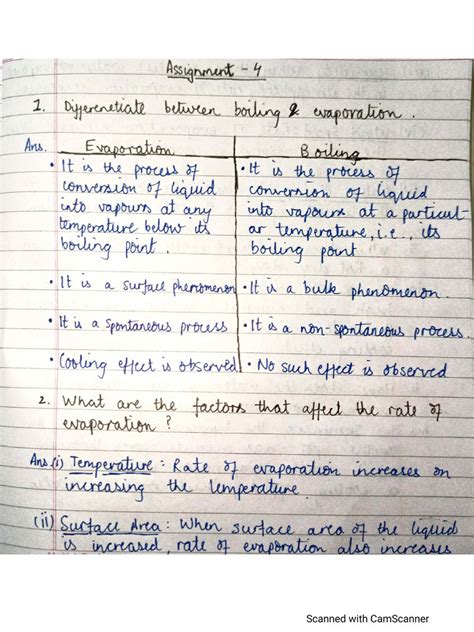 Assignment - 4
1. Differenetiate between boiling & evaporation.
Ans. Evaporation
• It is the process of
conversion of liquid
into vapours at any
temperature below its
boiling point.
• It is a surface phenomenon
• It is a spontaneous process
• Cooling effect is observed
Boiling
• It is the process of
conversion of liquid
into vapours at a particul-
ar temperature, i.e., its
boiling point
• It is a bulk phenomenon.
• It is a non-spontaneous process.
• No such effect is observed
2. What are the factors that affect the rate of
evaporation ?
Ans.(i) Temperature : Rate of evaporation increases on
increasing the temperature
(ii) Surface Area : When surface area of the liquid
is increased, rate of evaporation also increases
Scanned with CamScanner